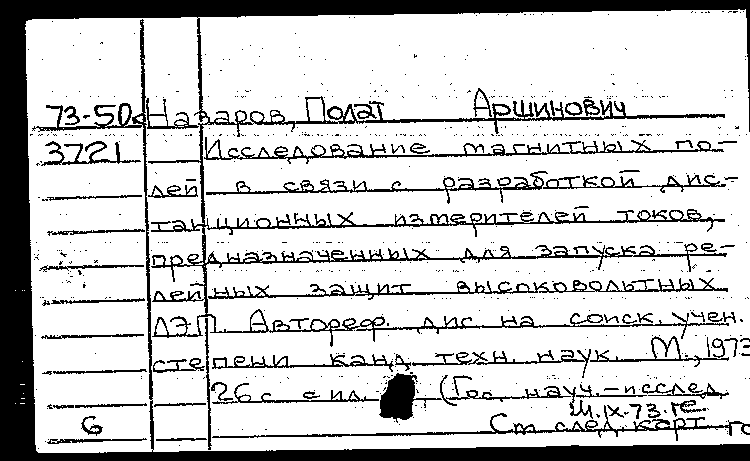 73-50к Назаров, Полат Аршинович
3721 Исследование магнитных по-
лей в связи с разработкой дис-
танционных измерителей токов,
предназначенных для запуска ре-
лейных защит высоковольтных
ЛЭП. Автореф. дис. на соиск. учен.
степени канд. техн. наук. М., 1973
26 с с ил. (Гос. науч.-исслед
IX.73.
6 См след. карт